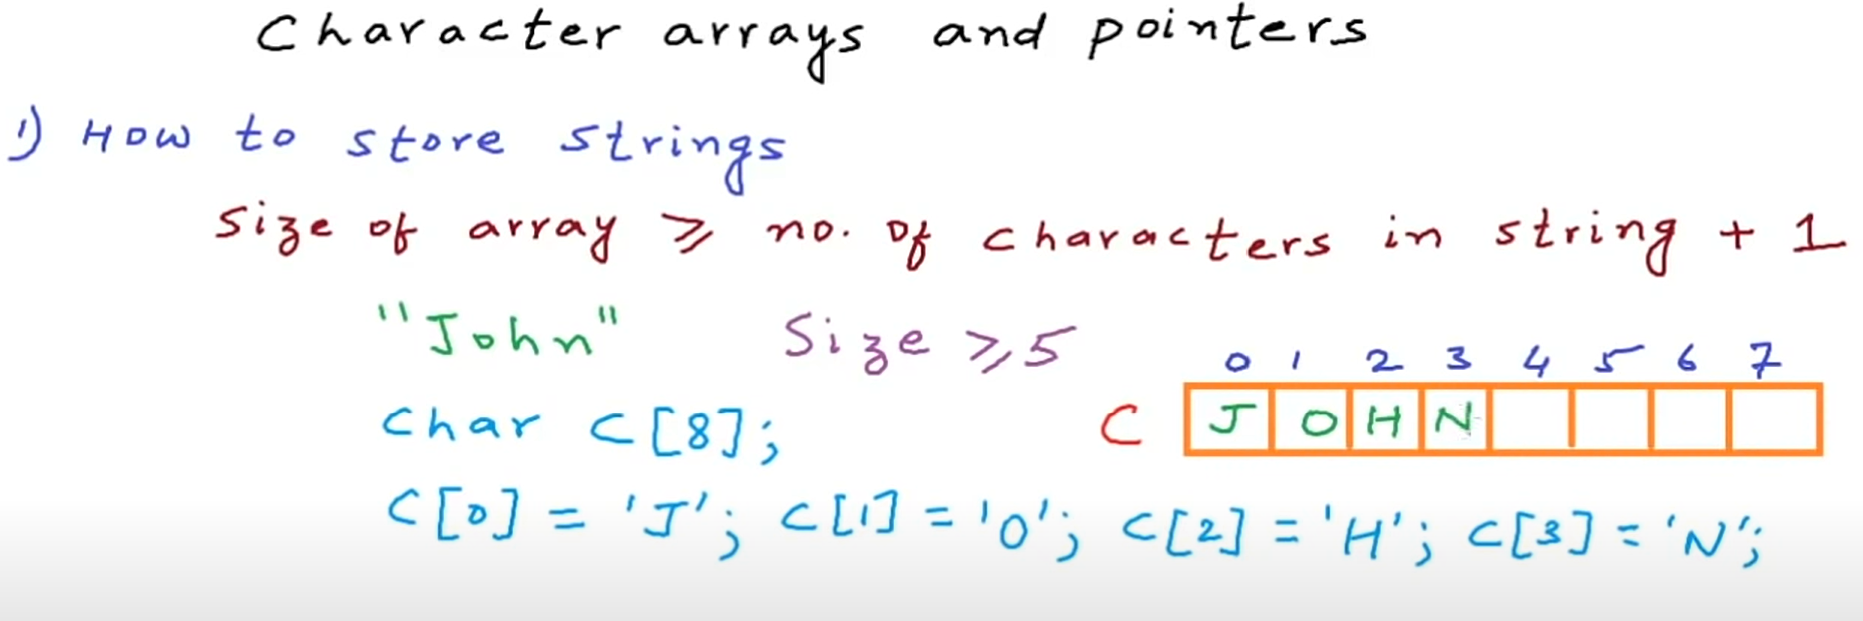 Character arrays and pointers
1) How to store strings
Size of array ⩾ no. of characters in string + 1
"John" Size ⩾ 5
0 1 2 3 4 5 6 7
Char C[8]; C J O H N
C[0] = 'J'; C[1] = 'O'; C[2] = 'H'; C[3] = 'N';